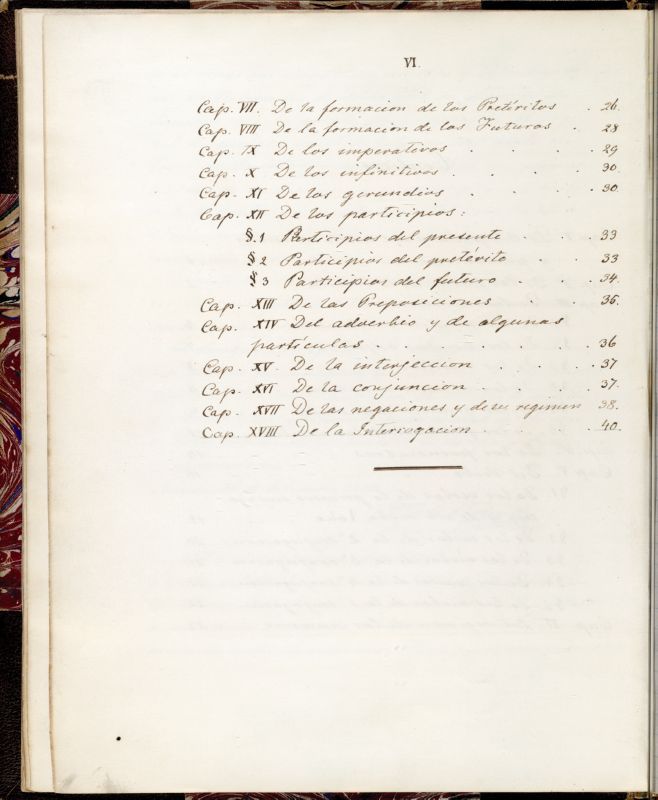 VI.
Cap. VII. De la formacion de los Pretéritos . 26.
Cap. VIII De la formacion de los Futuros . 28
Cap. IX De los imperativos . . . . 29
Cap. X De los infinitivos . . . . 30.
Cap. XI De los gerundios . . . . 30.
Cap. XII De los participios:
§.1 Participios del presente . . . 33
§ 2 Participios del pretérito . . . 33
§ 3 Participios del futuro . . . 34.
Cap. XIII De las Preposiciones . . . 35.
Cap. XIV Del adverbio y de algunas
partículas . . . . . . 36
Cap. XV. De la interjeccion . . . . 37
Cap. XVI De la conjuncion . . . . 37.
Cap. XVII De las negaciones y de su regimen 38.
Cap. XVIII De la Interrogacion . . . . 40.